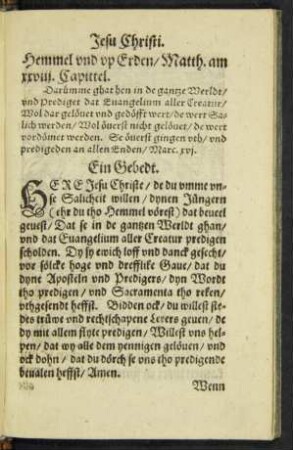 Jesu Christi.
Hemmel vnd vp Erden/ Matth. am
xxviij. Capittel.
Darümme ghat hen in de gantze Werldt/
vnd Prediget dat Euangelium aller Creatur/
Wol dar gelöuet vnd gedöfft wert/ de wert Sa-
lich werden/ Wol öuerst nicht gelöuet/ de wert
vordömet werden. Se öuerst gingen vth/ vnd
predigeden an allen Enden/ Marc. xvj.
Ein Gebedt.
HERE Jesu Christe/ de du vmme vn-
se Salicheit willen/ dynen Jüngern
(ehr du tho Hemmel vörest) dat beueel
geuest/ Dat se in de gantzen Werldt ghan/
vnd dat Euangelium aller Creatur predigen
scholden. Dy sy ewich loff vnd danck gesecht/
vor sölcke hoge vnd drefflike Gaue/ dat du
dyne Aposteln vnd Predigers/ dyn Wordt
tho predigen/ vnd Sacramenta tho reken/
vthgesendt heffst. Bidden ock/ du willest ste-
des trüwe vnd rechtschapene Lerers geuen/ de
dy mit allem flyte predigen/ Willest vns hel-
pen/ dat wy alle dem yennigen gelöuen/ vnd
ock dohn/ dat du dörch se vns tho predigende
beualen heffst/ Amen.
Wenn